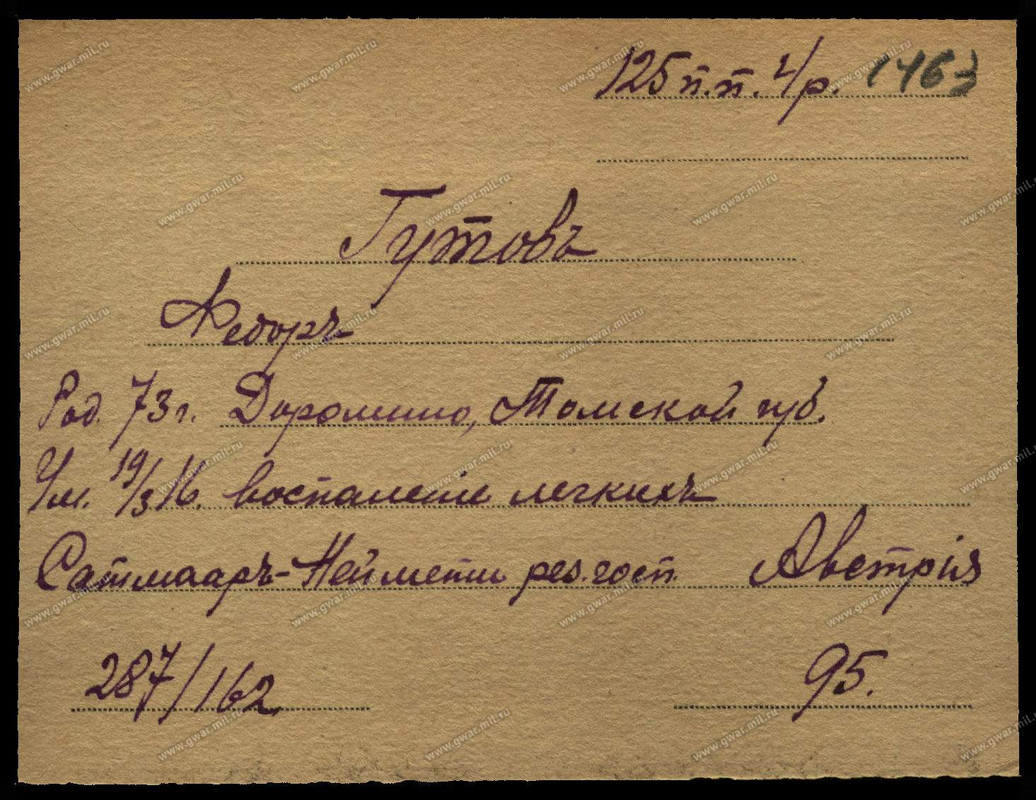 125 п.п. 4/р. 1463
Гутовъ
Федоръ
Род. 73 г. Даромино, Томской губ.
Ум. 19/3 16. воспаленіе легкихъ
Сатмааръ-Неймети рез. госп. Австрія
287/162. 95.